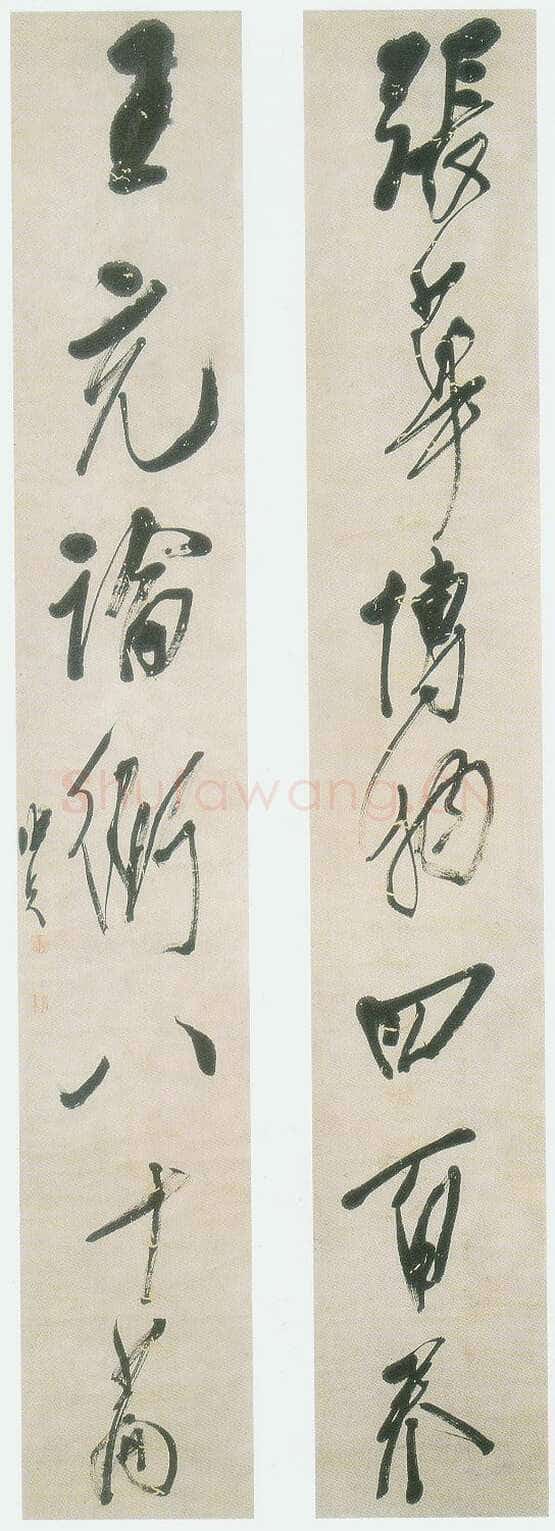 張華博物四百卷
王充論衡八十篇
Shufawang.CN